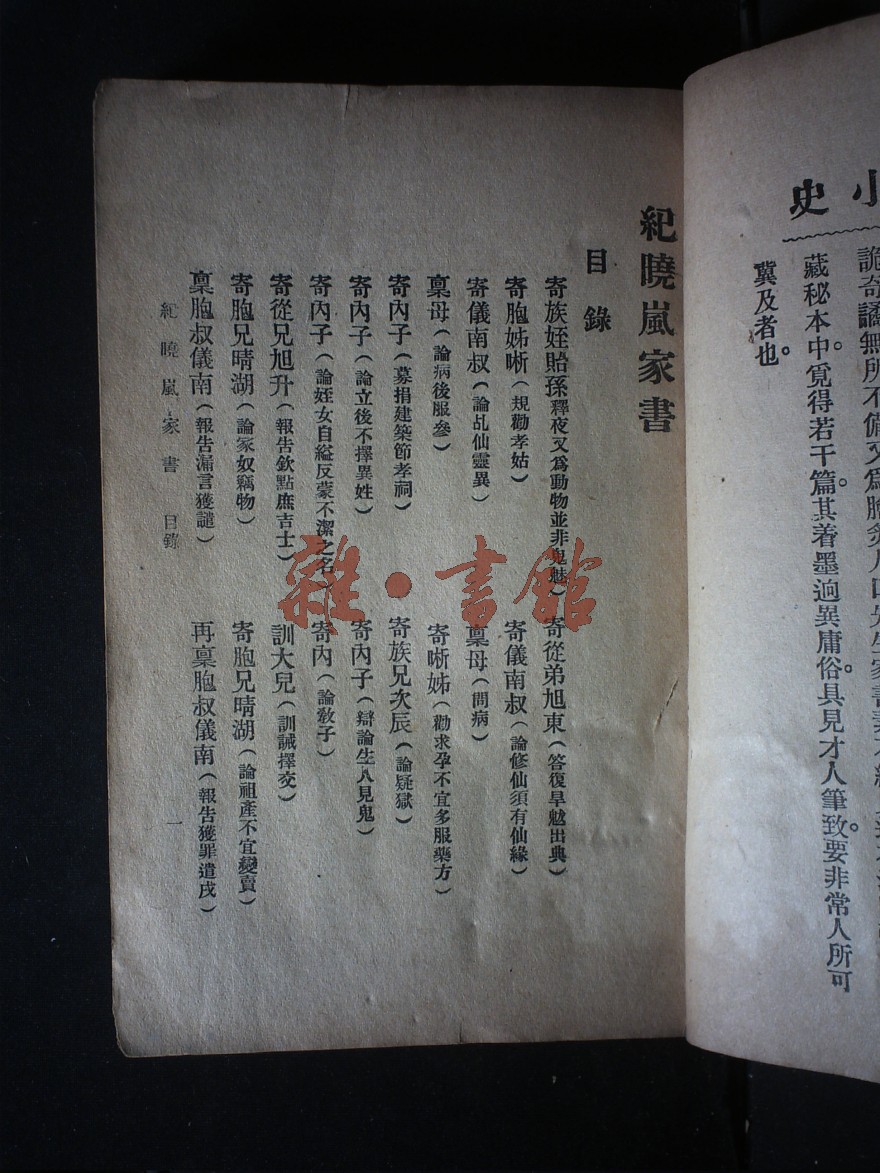 小史
詭奇譎無所不備又爲膾炙人口先生家書
藏秘本中。覓得若干篇。其着墨逈異庸俗。具見才人筆致。要非常人所可
冀及者也。
紀曉嵐家書
目錄
寄族姪貽孫釋夜叉爲動物並非鬼魅) 寄從弟旭東(答復旱魃出典)
寄胞姊晰(規勸孝姑) 寄儀南叔(論修仙須有仙緣)
寄儀南叔(論乩仙靈異) 稟母(問病)
稟母(論病後服參) 寄晰姊(勸求孕不宜多服藥方)
寄內子(募捐建築節孝祠) 寄族兄次辰(論疑獄)
寄內子(論立後不擇異姓) 寄內子(辯論生人見鬼)
寄內子(論姪女自縊反蒙不潔之名) 寄內(論敎子)
寄從兄旭升(報告欽點庶吉士) 訓大兒(訓誡擇交)
寄胞兄晴湖(論家奴竊物) 寄胞兄晴湖(論祖產不宜變賣)
稟胞叔儀南(報告漏言獲譴) 再稟胞叔儀南(報告獲罪遣戍)
紀曉嵐家書 目錄 一
雜·書館